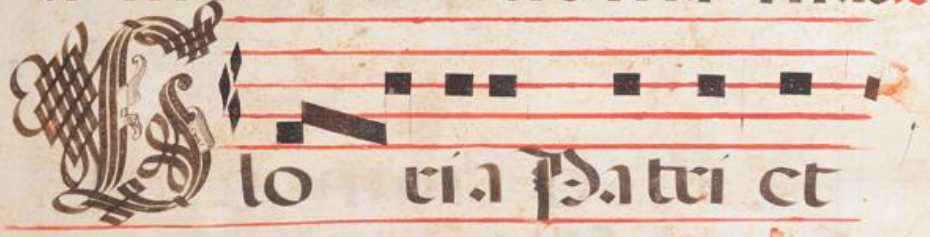 Gloria Patri et